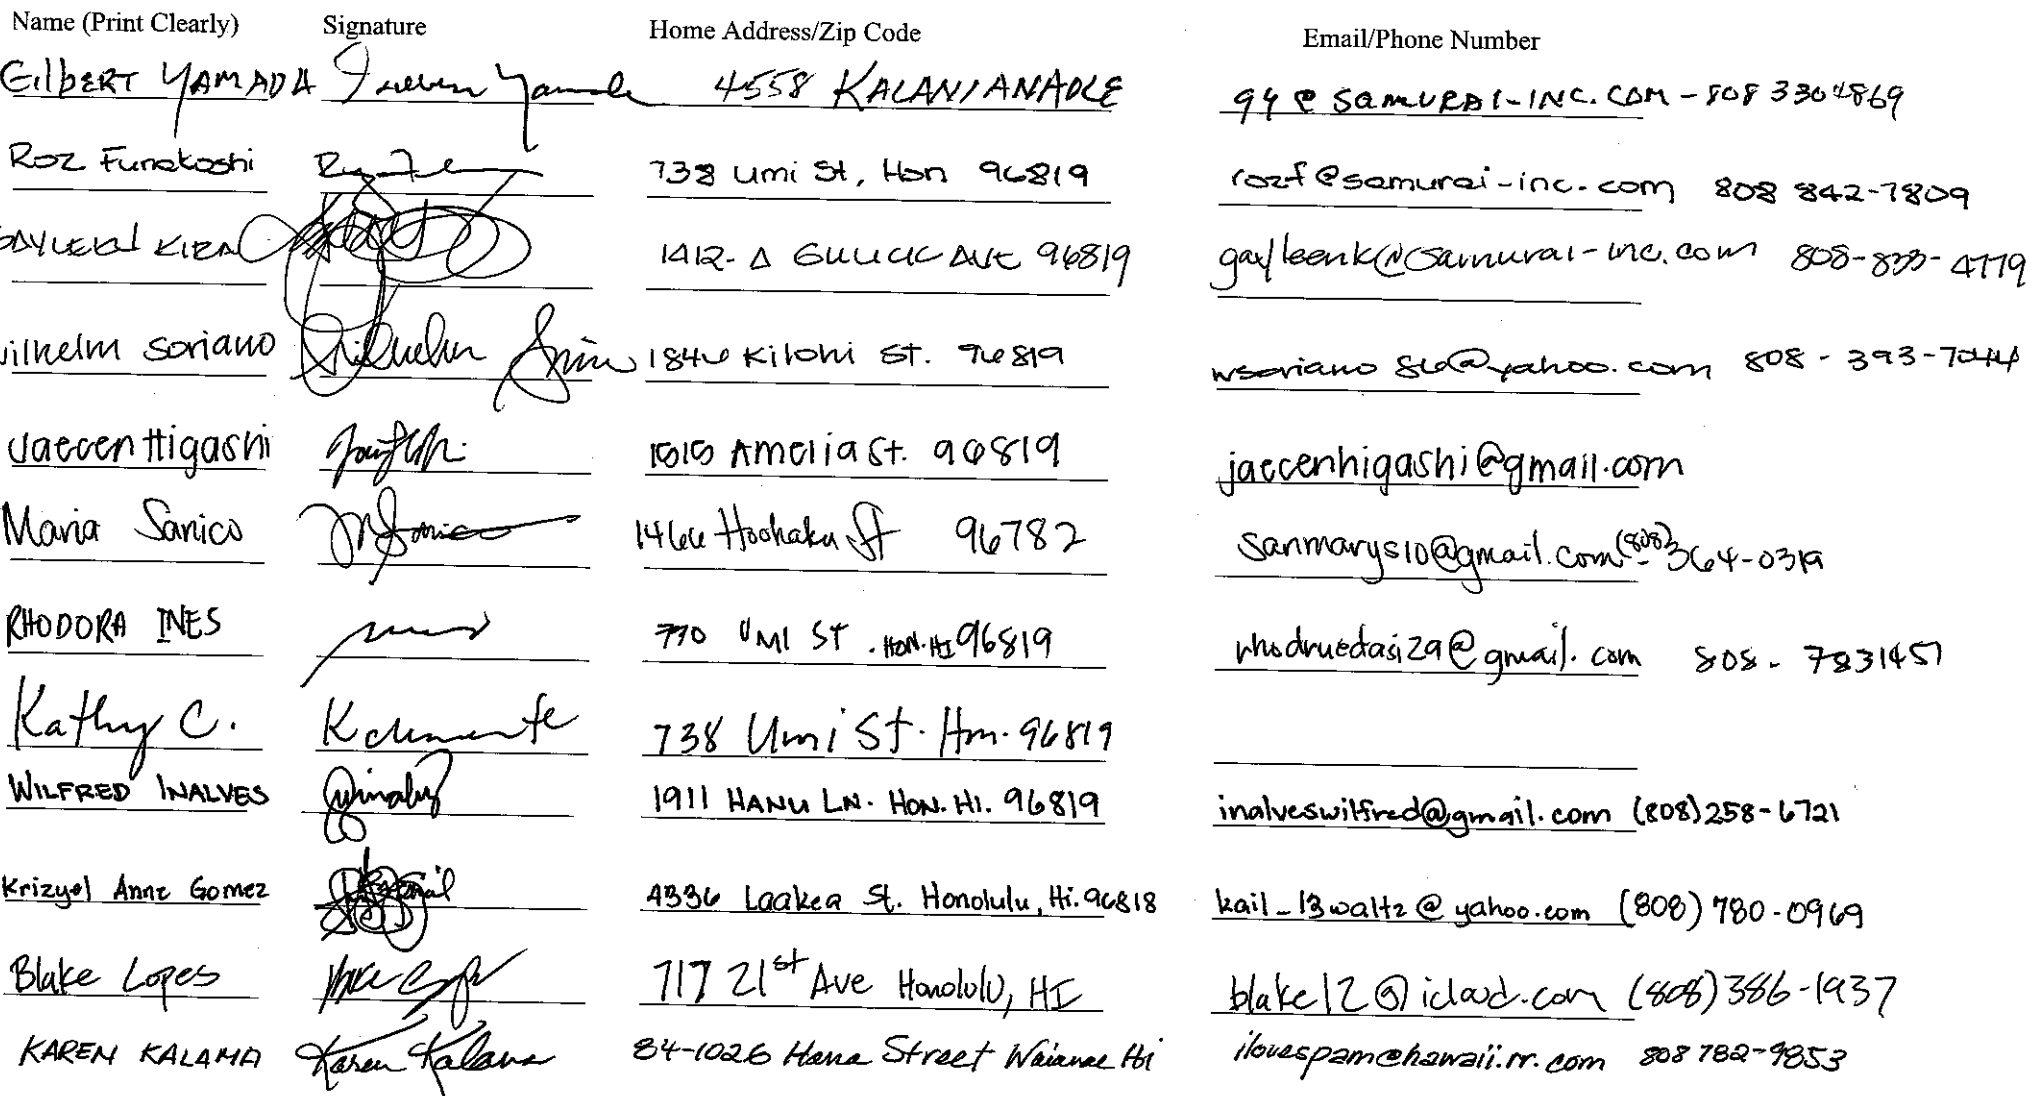 Name (Print Clearly) Signature Home Address/Zip Code Email/Phone Number
GilbERT YAMADA 4558 KALANIANAOLE @SAMURAI-INC.COM - 808 3304869
Roz Funakoshi 738 Umi St, Hon 96819 rozf@samurai-inc.com 808 842-7809
KIRA 1412-A GULICK AVE 96819 gayleenk@samurai-inc.com 808-833-4779
wilhelm soriano 1846 Kilohi St. 96819 wsoriano86@yahoo.com 808-393-7044
Jaecen Higashi 1515 Amelia St. 96819 jaecenhigashi@gmail.com
Maria Sanico 1466 Hoohaku St 96782 sanmarys10@gmail.com (808) 364-0319
RHODORA INES 770 UMI ST. HON. HI 96819 808-7831451
Kathy C. Kclemente 738 Umi St. Hon. 96819
WILFRED INALVES 1911 HANU LN. HON. HI. 96819 inalveswilfred@gmail.com (808)258-6721
Krizyel Anne Gomez 4336 Laakea St. Honolulu, Hi. 96818 kail_13waltz@yahoo.com (808) 780-0969
Blake Lopes 717 21st Ave Honolulu, HI blake12@icloud.com (808)386-1937
KAREN KALAMA Karen Kalama 84-1026 Hana Street Waianae Hi ilovespam@hawaii.rr.com 808 782-9853